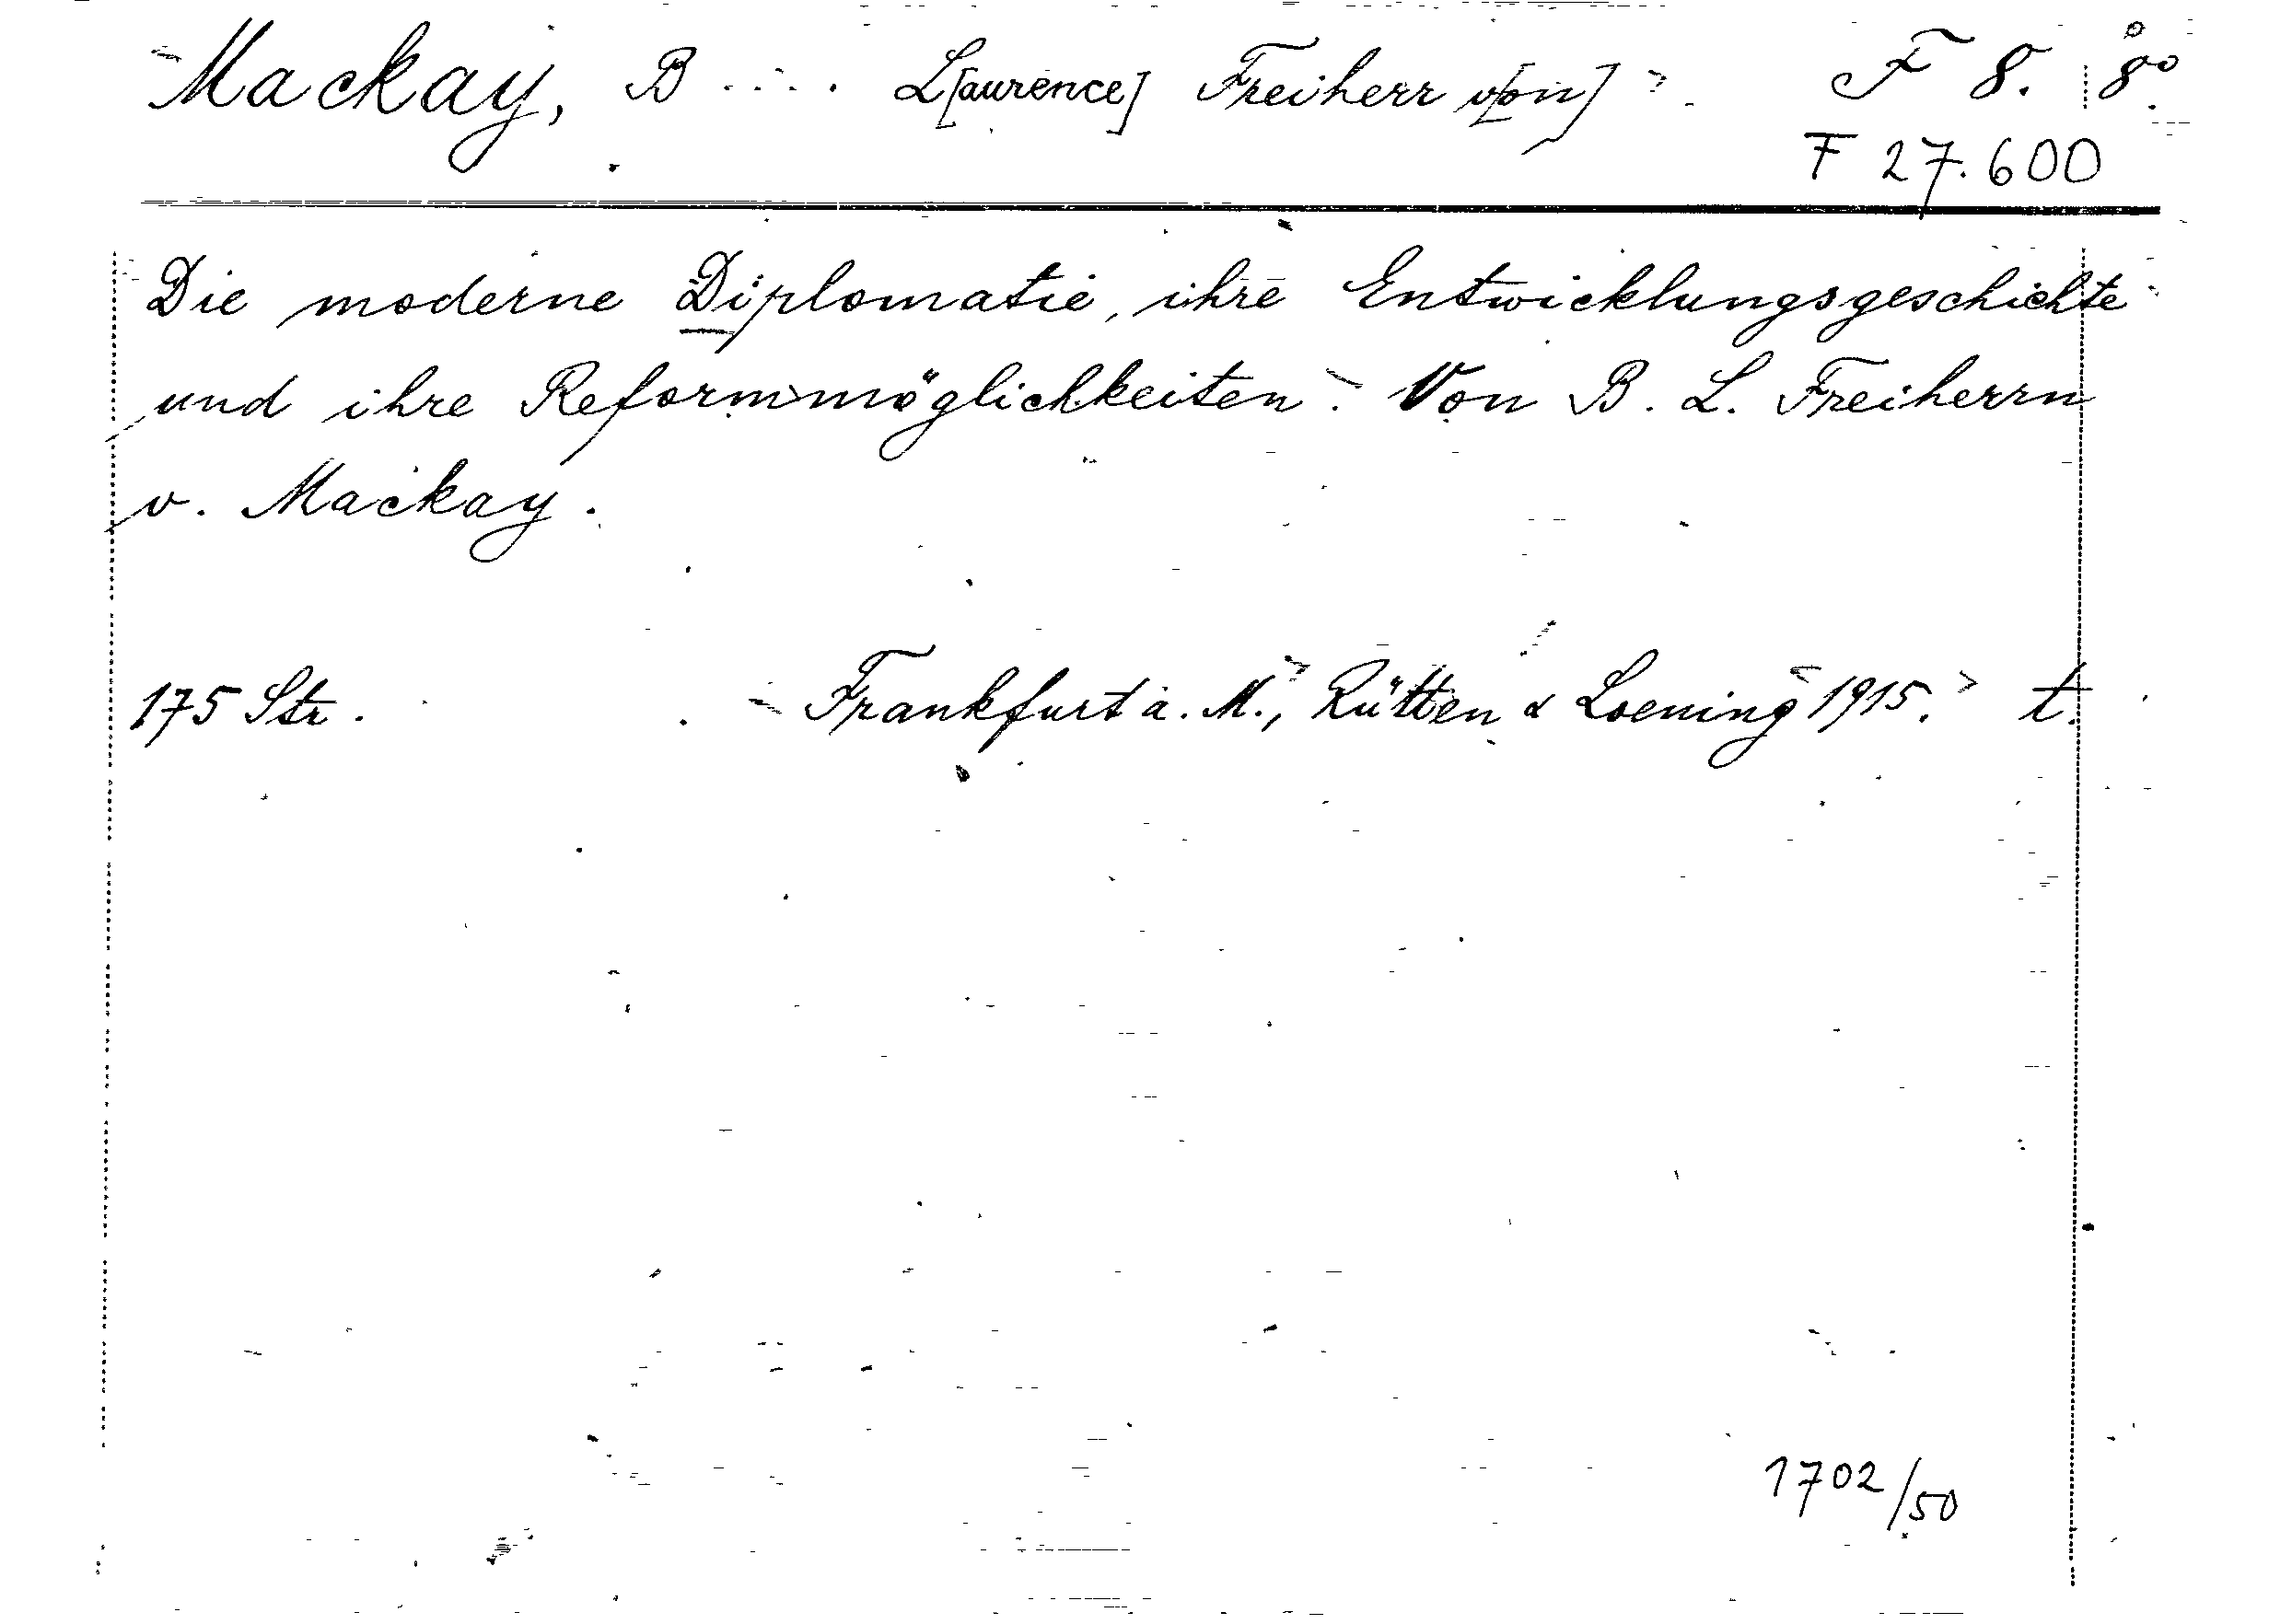 Mackay, B .... L[aurence] Freiherr v[on] F 8. 8°.
F 27.600
Die moderne Diplomatie, ihre Entwicklungsgeschichte
und ihre Reformmöglichkeiten. Von B. L. Freiherrn
v. Mackay.
175 Str. Frankfurt a. M., Rütten & Loening 1915. t.
1702/50